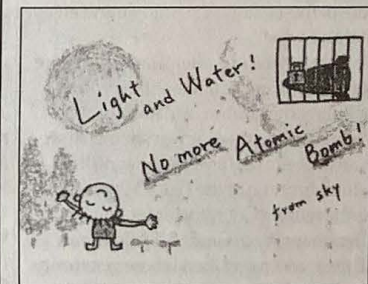 Light and Water!
No more Atomic Bomb!
from sky